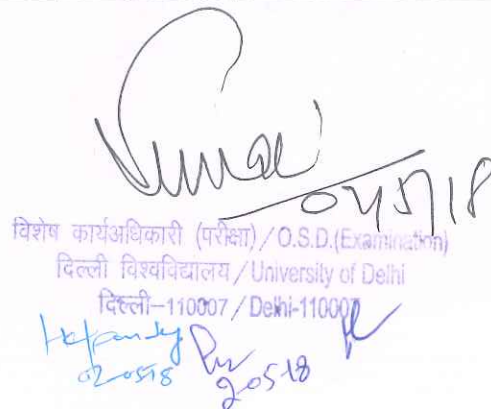 02/5/18
विशेष कार्यअधिकारी (परीक्षा)/O.S.D.(Examination)
दिल्ली विश्वविद्यालय/University of Delhi
दिल्ली-110007/Delhi-110007
02-05-18
2-05-18